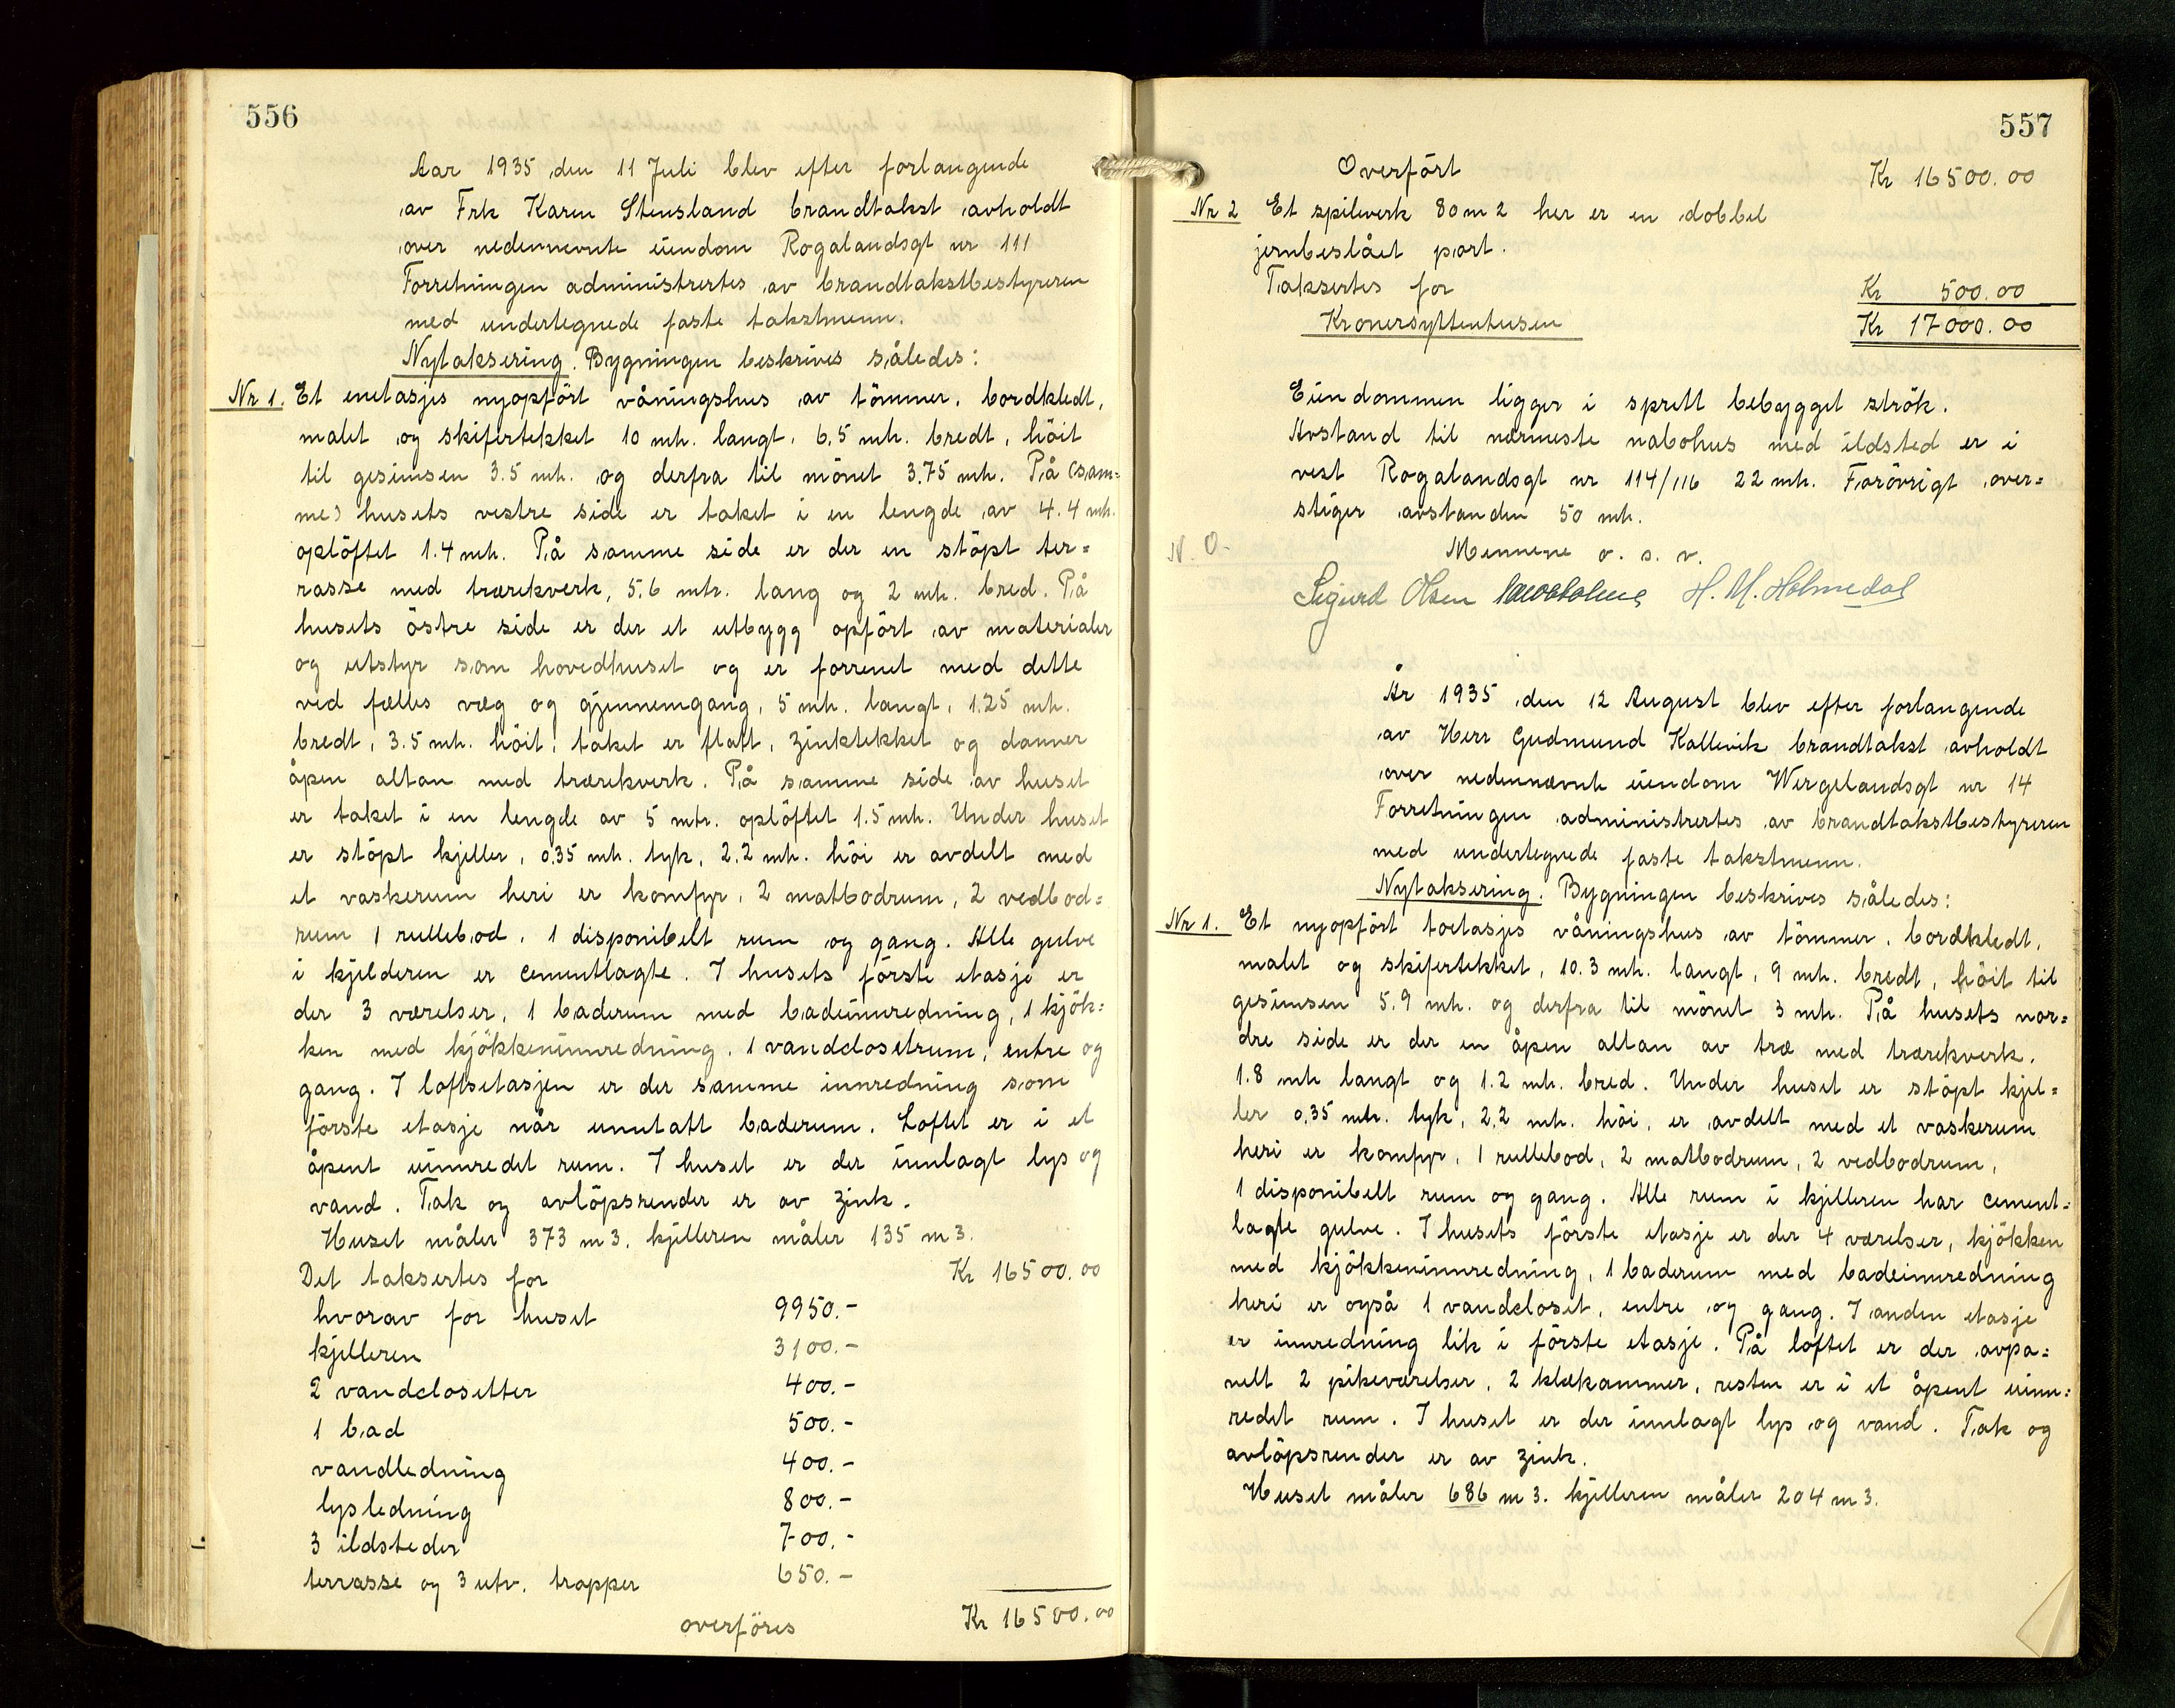 556
Aar 1935 den 11 Juli blev efter forlangende
av Frk Karen Stensland brandtakst avholdt
over nedennevnte eiendom Rogalandsgt nr 111
Forretningen administrertes av brandtakstbestyreren
med undertegnede faste takstmenn.
Nytaksering. Bygningen beskrives således:
Nr 1. Et enetasjes nyopfört våningshus av tömmer, bordkledt,
malet og skifertekket 10 mtr. langt, 6,5 mtr. bredt, höit
til gesimsen 3.5 mtr. og derfra til mönet 3.75 mtr. På (sam=
me) husets vestre side er taket i en lengde av 4.4 mtr.
oplöftet 1.4 mtr. På samme side er der en stöpt ter=
rasse med trærekverk, 5,6 mtr. lang og 2 mtr. bred. På
husets östre side er der et utbygg opfört av materialer
og utstyr som hovedhuset og er forrenet med dette
ved fælles væg og gjennemgang, 5 mtr. langt, 1.25 mtr.
bredt, 3.5 mtr. höit; taket er flatt, zinktekket og danner
åpen altan med trærekverk. På samme side av huset
er taket i en lengde av 5 mtr. oplöftet 1.5 mtr. Under huset
er stöpt kjeller, 0,35 mtr. tyk, 2.2 mtr. höi er avdelt med
et vaskerum heri er komfyr, 2 matbodrum, 2 vedbod=
rum 1 rullebod, 1 disponibelt rum og gang. Alle gulve
i kjelderen er cementlagte. I husets förste etasje er
der 3 værelser, 1 baderum med badeinnredning, 1 kjök=
ken med kjökkeninnredning, 1 vandclosetrum, entre og
gang. I loftsetasjen er der samme innredning som
förste etasje når unntatt baderum. Loftet er i et
åpent uinnredet rum. I huset er der innlagt lys og
vand. Tak og avlöpsrender er av zink.
Huset måler 373 m3. kjelleren måler 135 m3.
Det taksertes for Kr 16500.00
hvorav for huset 9950.-
kjelleren 3100.-
2 vandclosetter 400.-
1 bad 500.-
vandledning 400.-
lysledning 800.-
3 ildsteder 700.-
terrasse og 3 utv. trapper 650.-
overföres Kr 16500.00
557
Overfört Kr 16500.00
Nr 2 Et spilverk 80 m2 her er en dobbel
jernbeslået port.
Taksertes for Kr 500.00
Kronersyttentusen Kr 17000.00
Eiendommen ligger i sprett bebygget strök.
Avstand til nærmeste nabohus med ildsted er i
vest Rogalandsgt nr 114/116 22 mtr. Forövrigt over=
stiger avstanden 50 mtr.
N. O.
Mennene o. s. v.
Sigurd Olsen H. M. Holmedal
År 1935 den 12 August blev efter forlangende
av Herr Gudmund Kallevik brandtakst avholdt
over nedennævnte eiendom Wergelandsgt nr 14
Forretningen administrertes av brandtakstbestyreren
med undertegnede faste takstmenn.
Nytaksering. Bygningen beskrives således:
Nr 1. Et nyopfört toetasjes våningshus av tömmer, bordkledt,
malet og skifertekket, 10.3 mtr. langt, 9 mtr. bredt, höit til
gesimsen 5.9 mtr. og derfra til mönet 3 mtr. På husets nor=
dre side er der en åpen altan av træ med trærekverk.
1.8 mtr langt og 1.2 mtr. bred. Under huset er stöpt kjel=
ler 0,35 mtr. tyk, 2,2 mtr. höi, er avdelt med et vaskerum
heri er komfyr, 1 rullebod, 2 matbodrum, 2 vedbodrum,
1 disponibelt rum og gang. Alle rum i kjelleren har cement=
lagte gulve. I husets förste etasje er der 4 værelser, kjökken
med kjökkeninnredning, 1 baderum med badeinnredning
heri er også 1 vandcloset, entre og gang. I anden etasje
er innredning lik i förste etasje. På loftet er der avpa=
nelt 2 pikeværelser, 2 klekammer, resten er i et åpent uinn=
redet rum. I huset er der innlagt lys og vand. Tak og
avlöpsrender er av zink.
Huset måler 686 m3. kjelleren måler 204 m3.